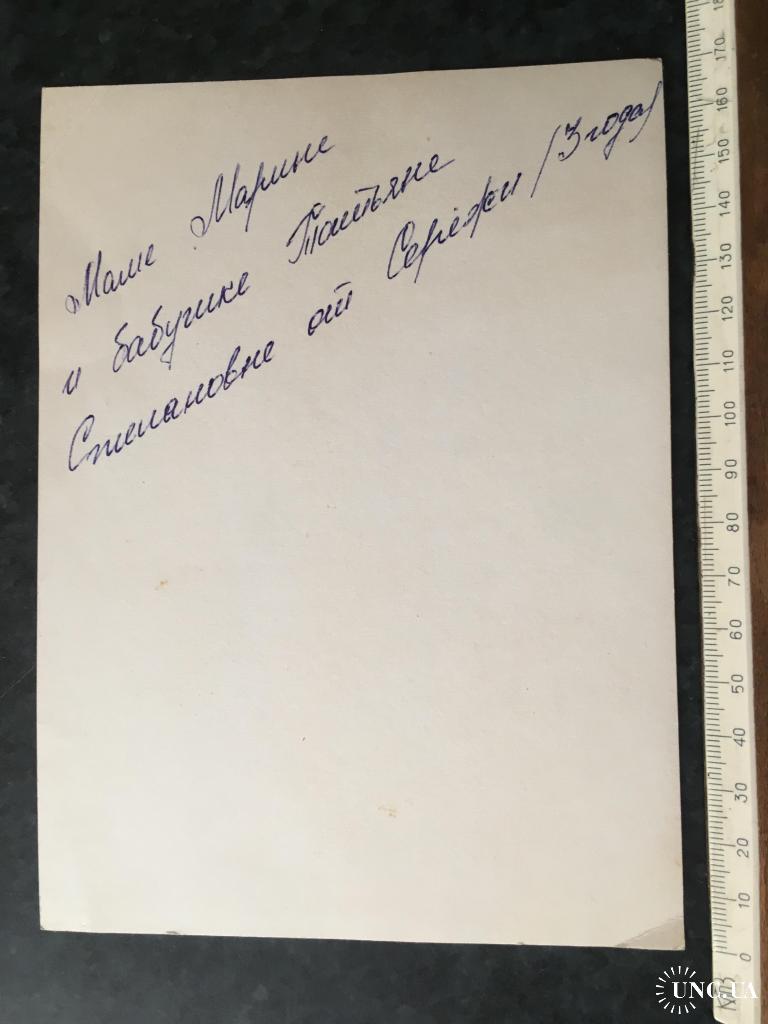 Маме Марине
и бабушке Татьяне
Степановне от Серёжи /3 года/
180
170
160
150
140
130
120
110
100
90
80
70
60
50
40
30
20
10
0
UNC.UA